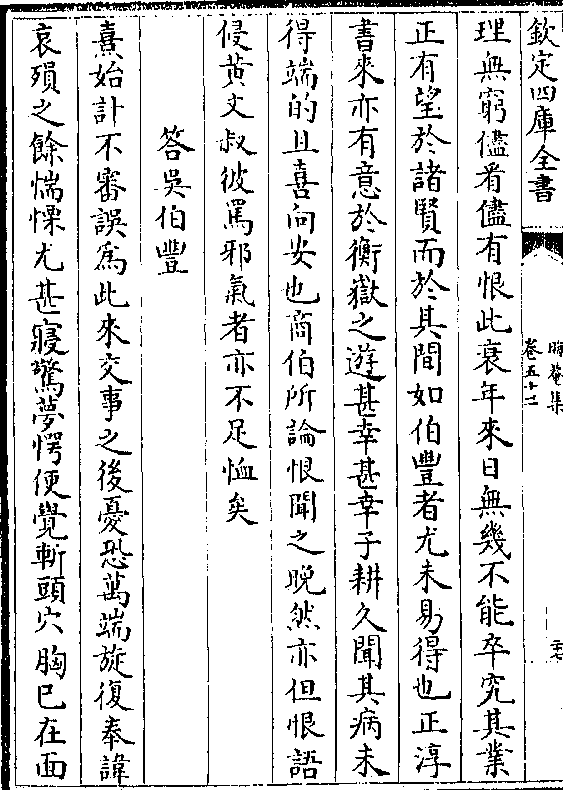 欽定四庫全書
晦菴集
卷五十二
理無窮儘看儘有恨此衰年來日無幾不能卒究其業
正有望於諸賢而於其間如伯豐者尤未易得也正淳
書來亦有意於衡嶽之遊甚幸甚幸子耕久聞其病未
得端的且喜向安也商伯所論恨聞之晚然亦但恨語
侵黄文叔彼罵邪氣者亦不足恤矣
答吳伯豐
熹始計不審誤為此來交事之後憂恐萬端旋復奉諱
哀殞之餘惴慄尤甚寢驚夢愕便覺斬頭穴胸已在面